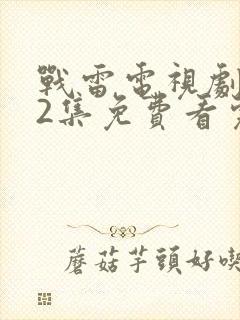 戰雷電視劇
2集免費看
蘑菇芋頭好喫